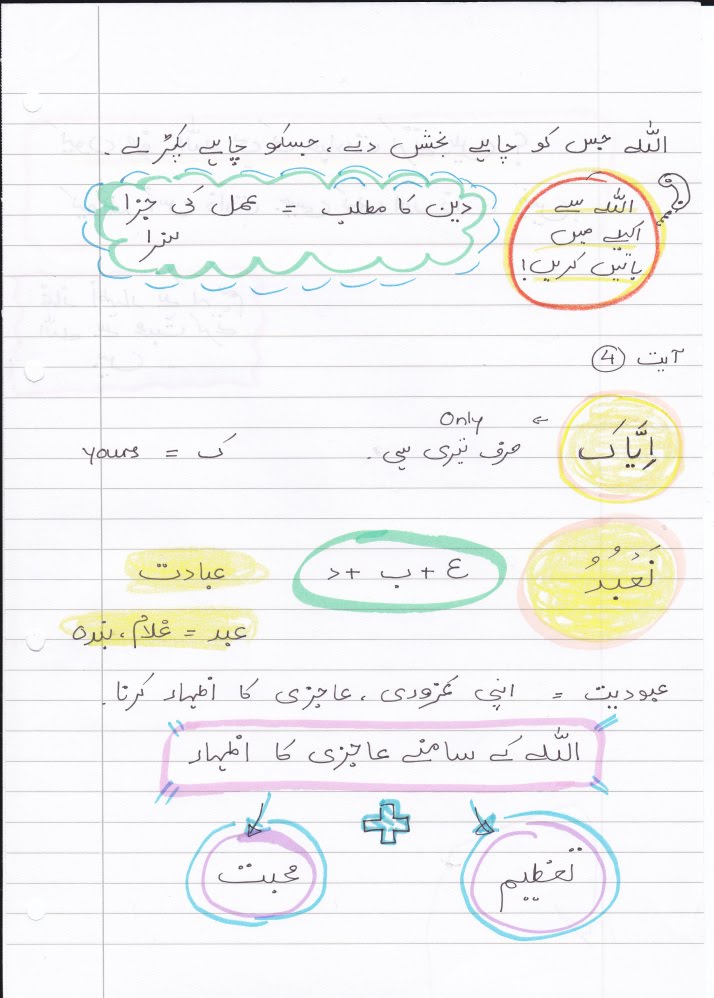 اللہ جس کو چاہیے بخش دے، جسکو چاہیے پکڑ لے۔
اللہ سے
اکیلے میں
باتیں کریں!
دین کا مطلب = عمل کی جزا
سزا
آیت ④
اِیَّاکَ
← Only
صرف تیری ہی۔
ک = yours
نَعْبُدُ
ع + ب + د
عبادت
عبد = غلام، بندہ
عبودیت = اپنی کمزوری، عاجزی کا اظہار کرنا۔
اللہ کے سامنے عاجزی کا اظہار
تعظیم
+
محبت